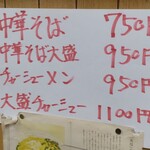 中華そば 750円
中華そば大盛 950円
チャーシューメン 950円
大盛チャーシュー 1100円